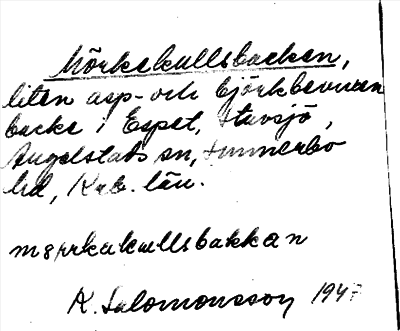 Mörkekullsbacken,
liten asp- och björkbevuxen
backe i Espet, Stavsjö,
Angelstads sn, Sunnerbo
hd, Krb. län.
mørkakullsbakkan
K. Salomonsson 1947